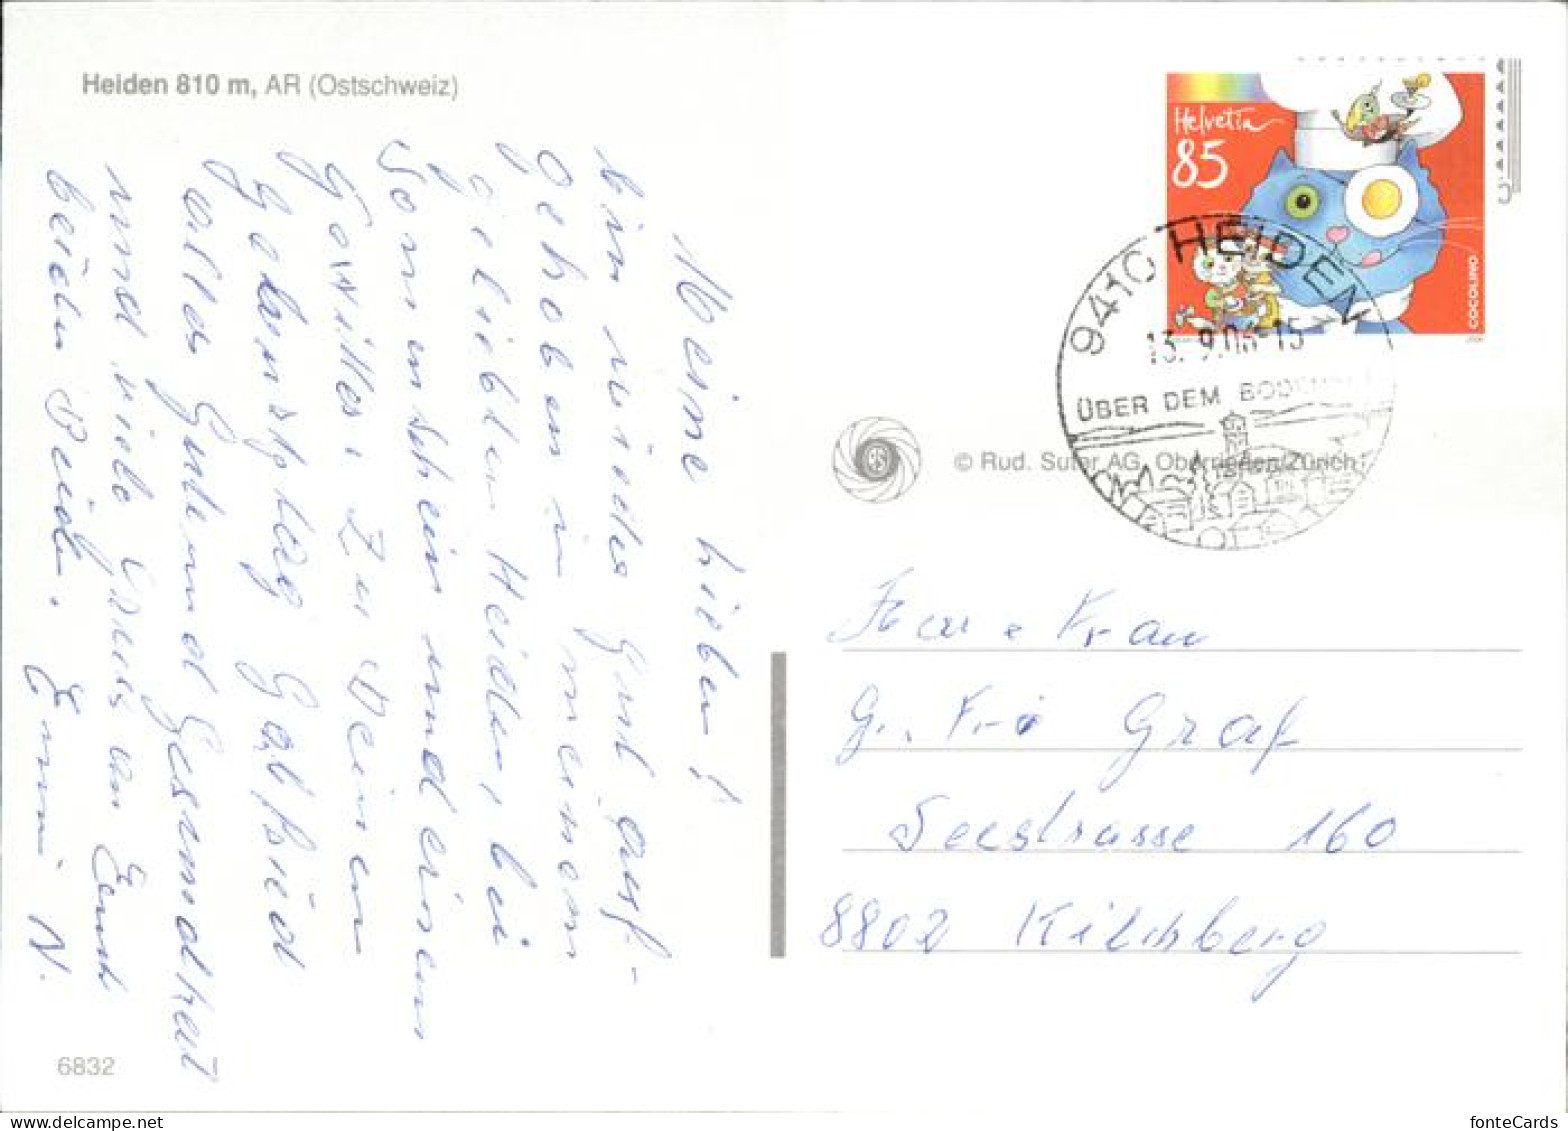 Heiden 810 m, AR (Ostschweiz)
Meine Lieben!
bin wieder gut auf-
gehoben in meinem
geliebten Heiden, bei
Sonnenschein und einem
Gewitter. Zu Deinem
Geburtstag
alles Gute und Gesundheit
und viele Grüsse an Ernst
beiden Beiden. Emmi N.
6832
Helvetia
85
COCOLINO
9410 HEIDEN
13.9.06-15
ÜBER DEM BODENSEE
© Rud. Suter AG, Oberrieden/Zürich
Herr + Frau
Graf
Seestrasse 160
8802 Kilchberg
fonteCards